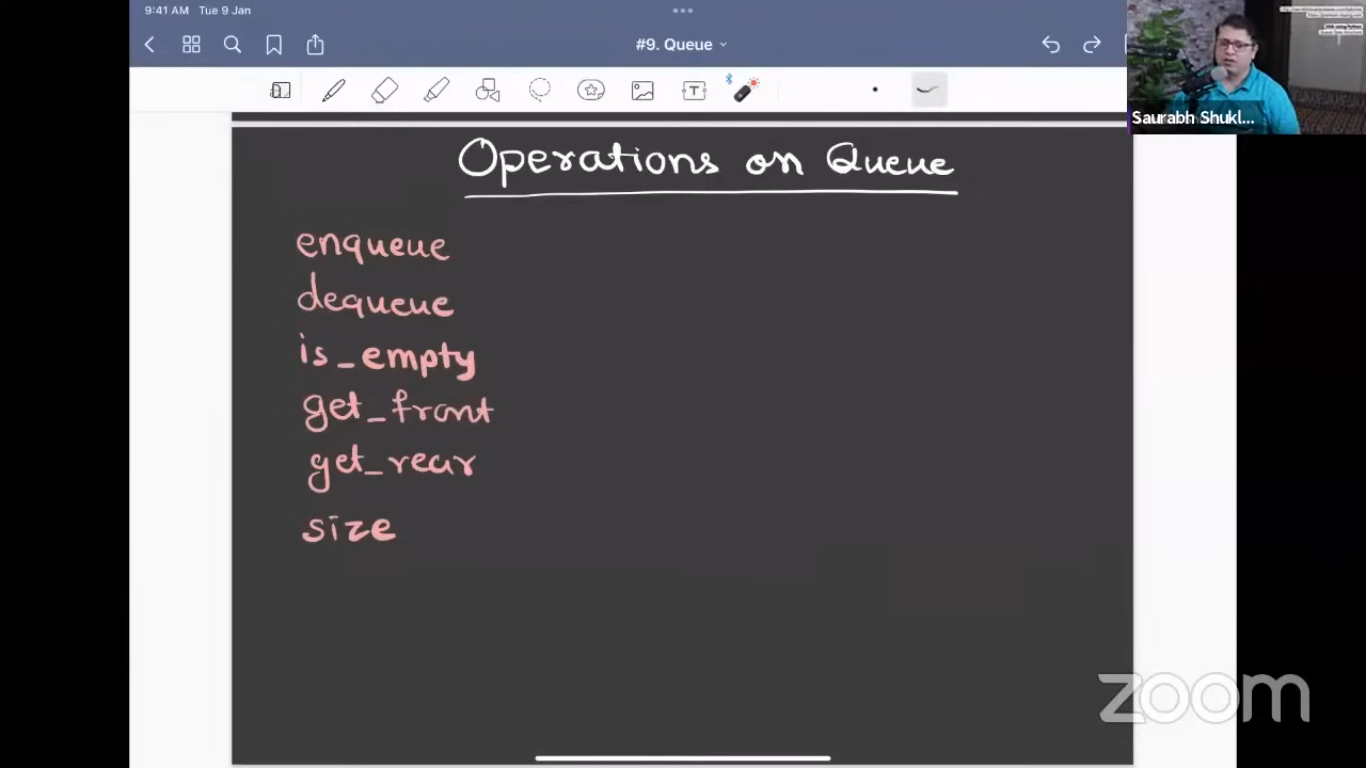 9:41 AM Tue 9 Jan
#9. Queue
T
Saurabh Shukl...
Operations on Queue
enqueue
dequeue
is_empty
get_front
get_rear
size
zoom